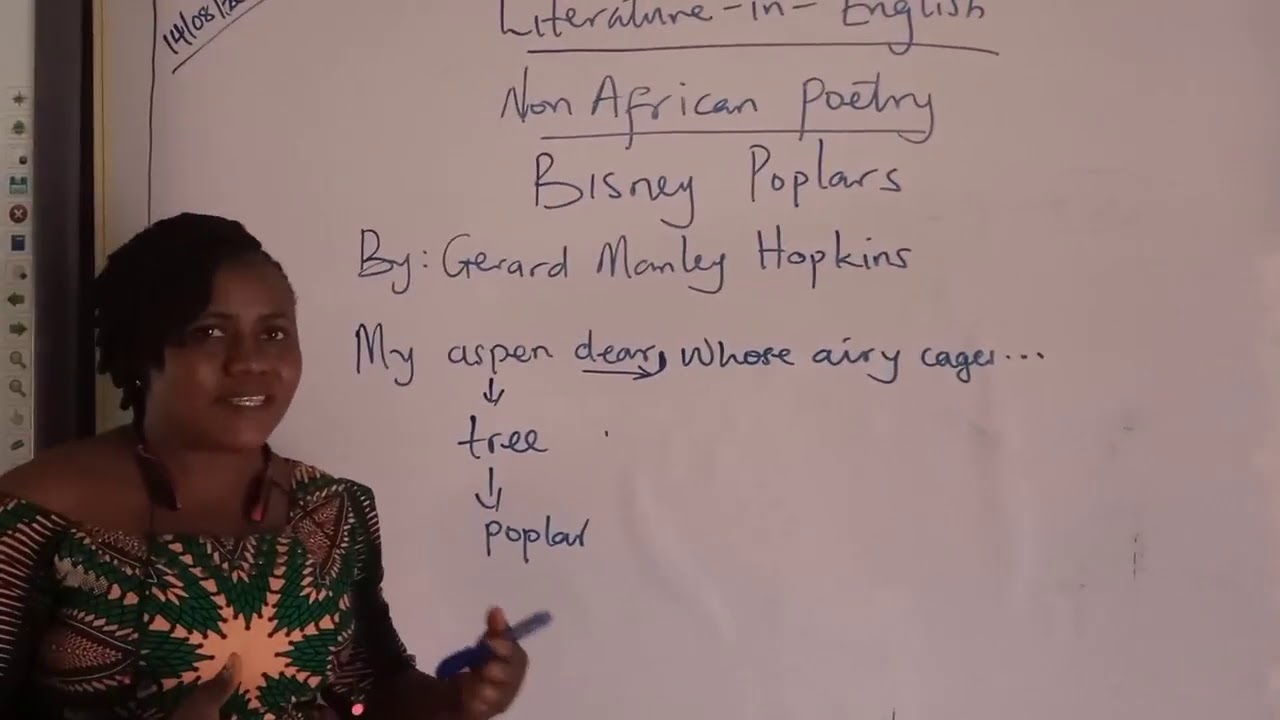 14/08/2
Literature-in-English
Non African Poetry
Bisney Poplars
By: Gerard Manley Hopkins
My aspen dear, whose airy cages...
tree
poplar